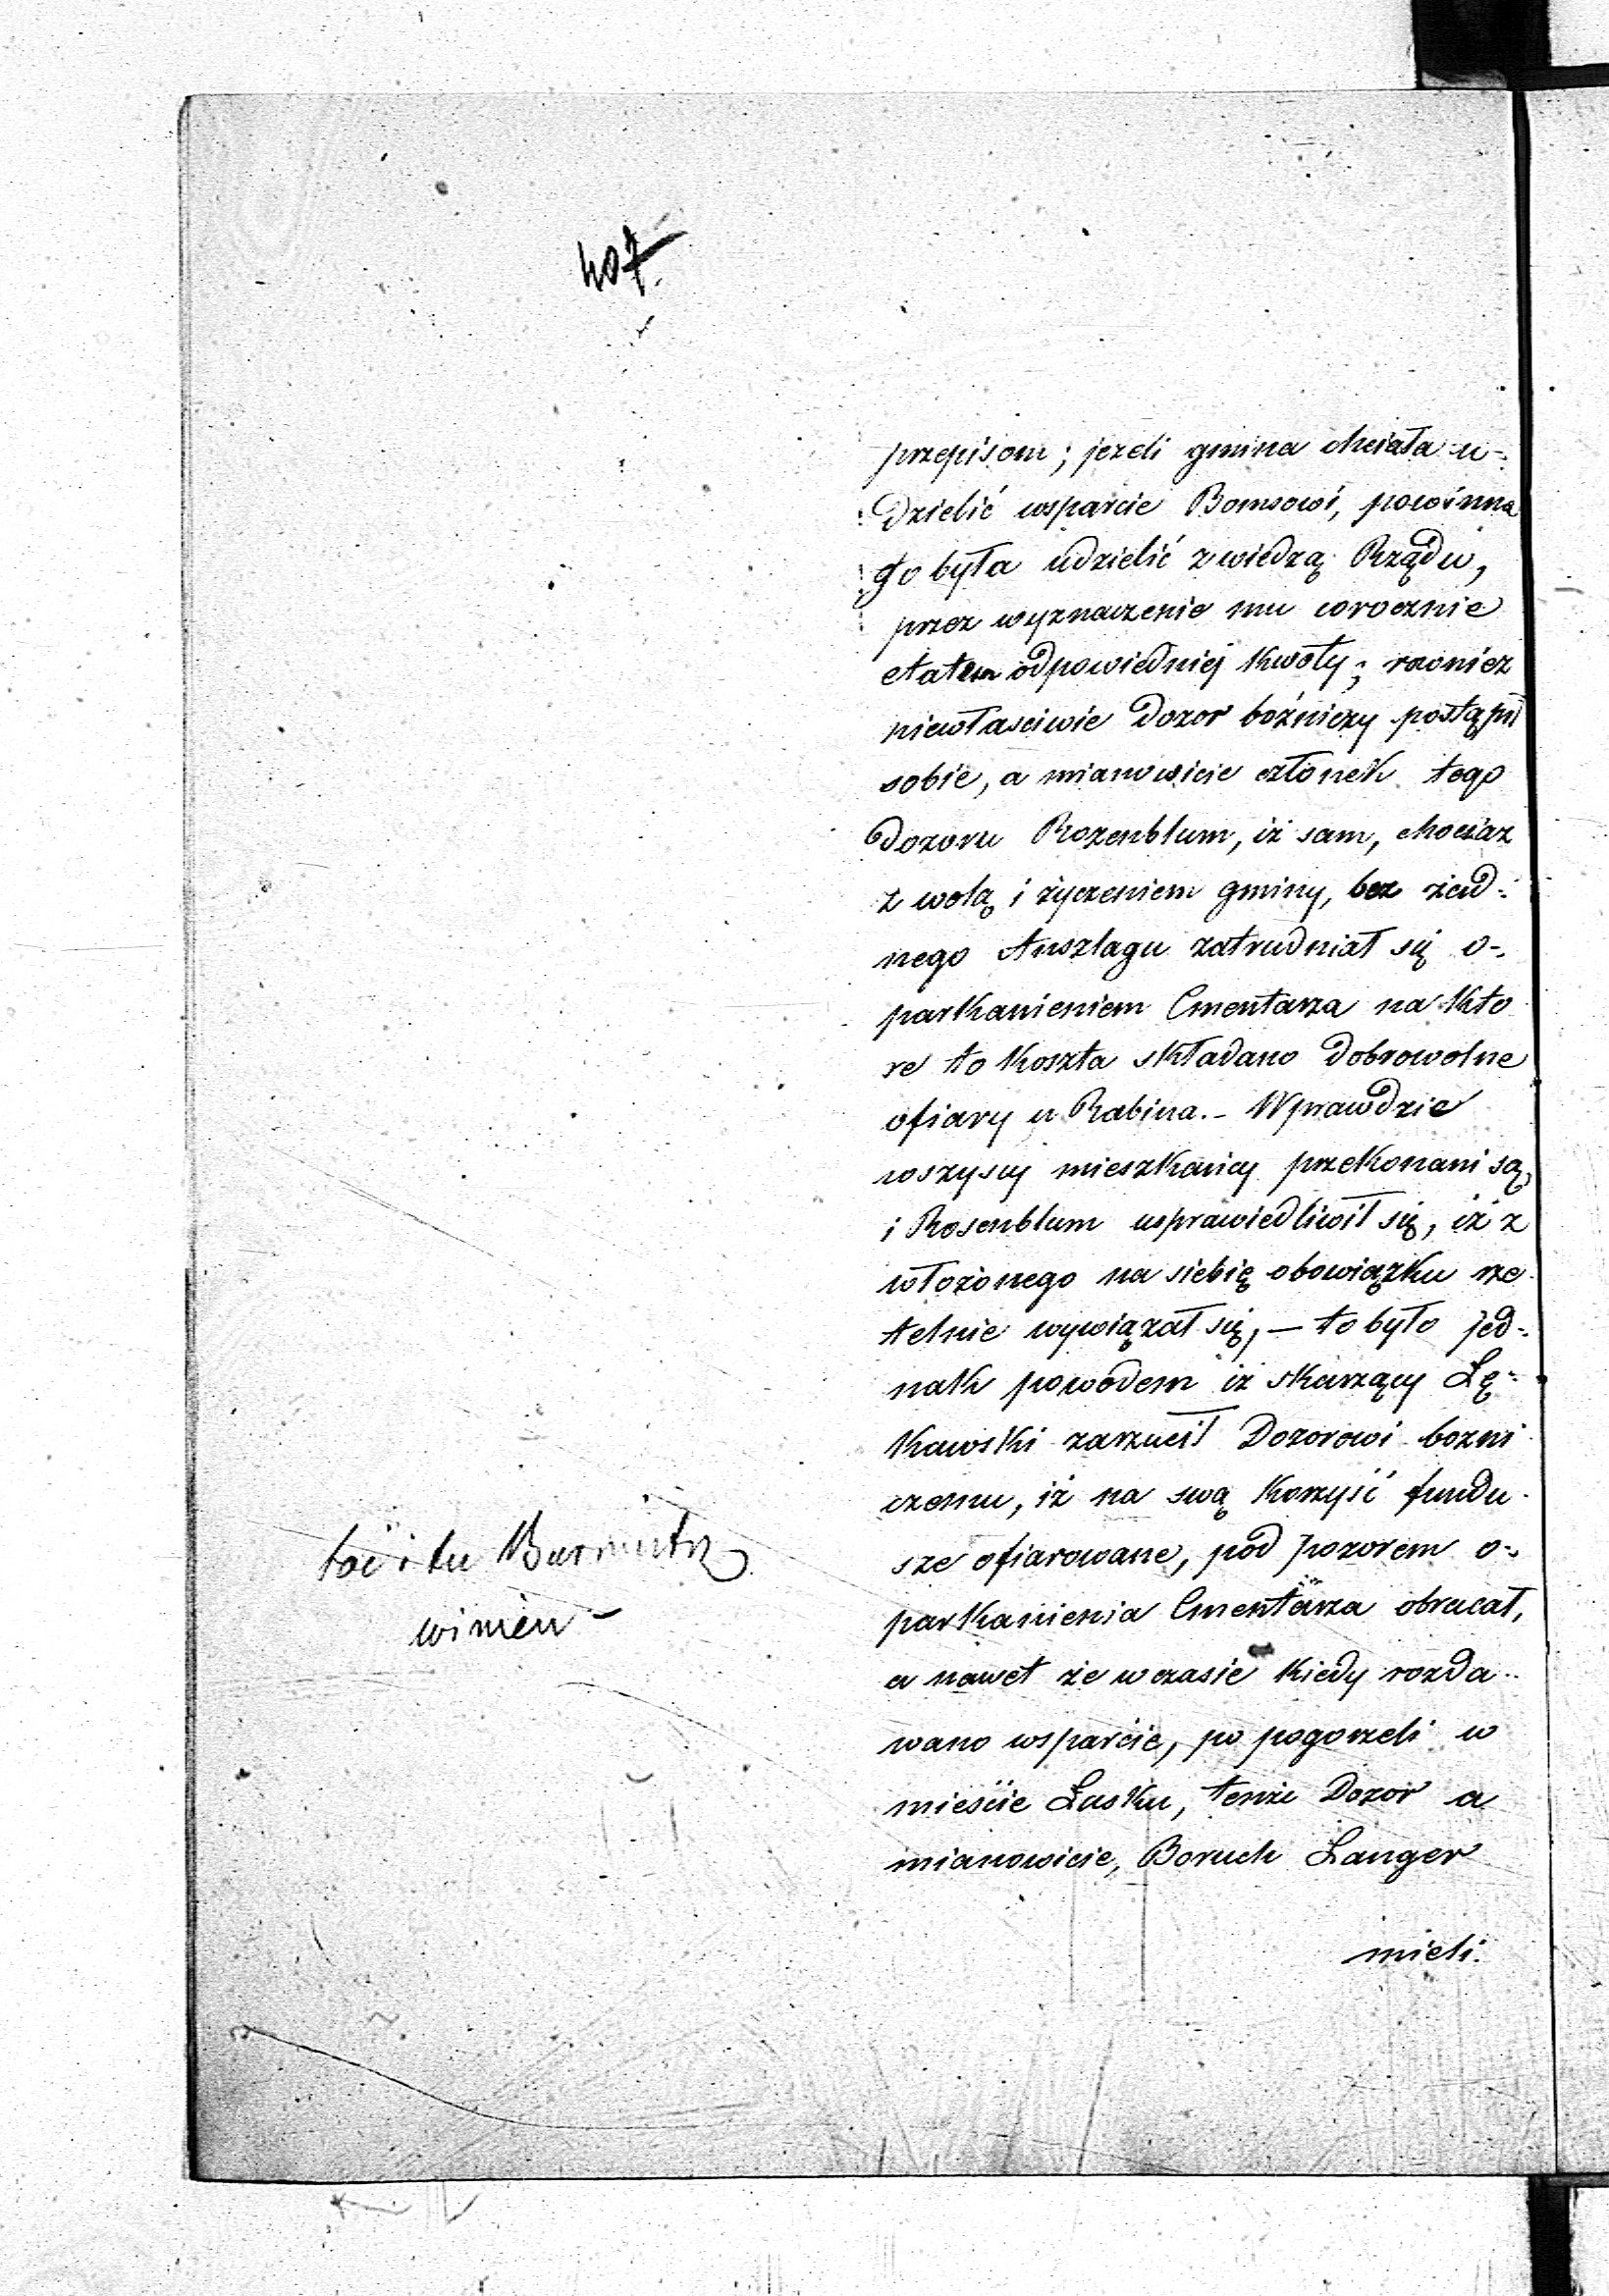 407.
przepisom; jezeli gmina chciała u-
dzielić wsparcie Bomsowi, powinna
go była udzielić z wiedzą Rządu,
przez wyznaczenie mu corocznie
etatem odpowiedniej kwoty; rownież
niewłasciwie Dozor boźniczy postąpił
sobie, a mianowicie członek tego
Dozoru Rozenblum, iż sam, chociaz
z wolą i życzeniem gminy, bez żad-
nego Anszlagu zatrudniał się o-
parkanieniem Cmentarza na kto
re to koszta składano dobrowolne
ofiary u Rabina. - Wprawdzie
wszyscy mieszkańcy przekonani są,
i Rosenblum usprawiedliwił się, iż z
włożonego na siebię obowiązku rze
telnie wywiązał się, — to było jed-
nak powodem iż skarzący Lę-
kawski zarzucił Dozorowi bozni
czemu, iż na swą korzyść fundu-
sze ofiarowane, pod pozorem o-
parkanienia Cmentarza obracał,
a nawet że w czasie kiedy rozda-
wano wsparcie, po pogorzeli w
mieście Łasku, tenże Dozor a
mianowicie, Boruch Langer
mieli
toć i tu Burmistrz
winien -